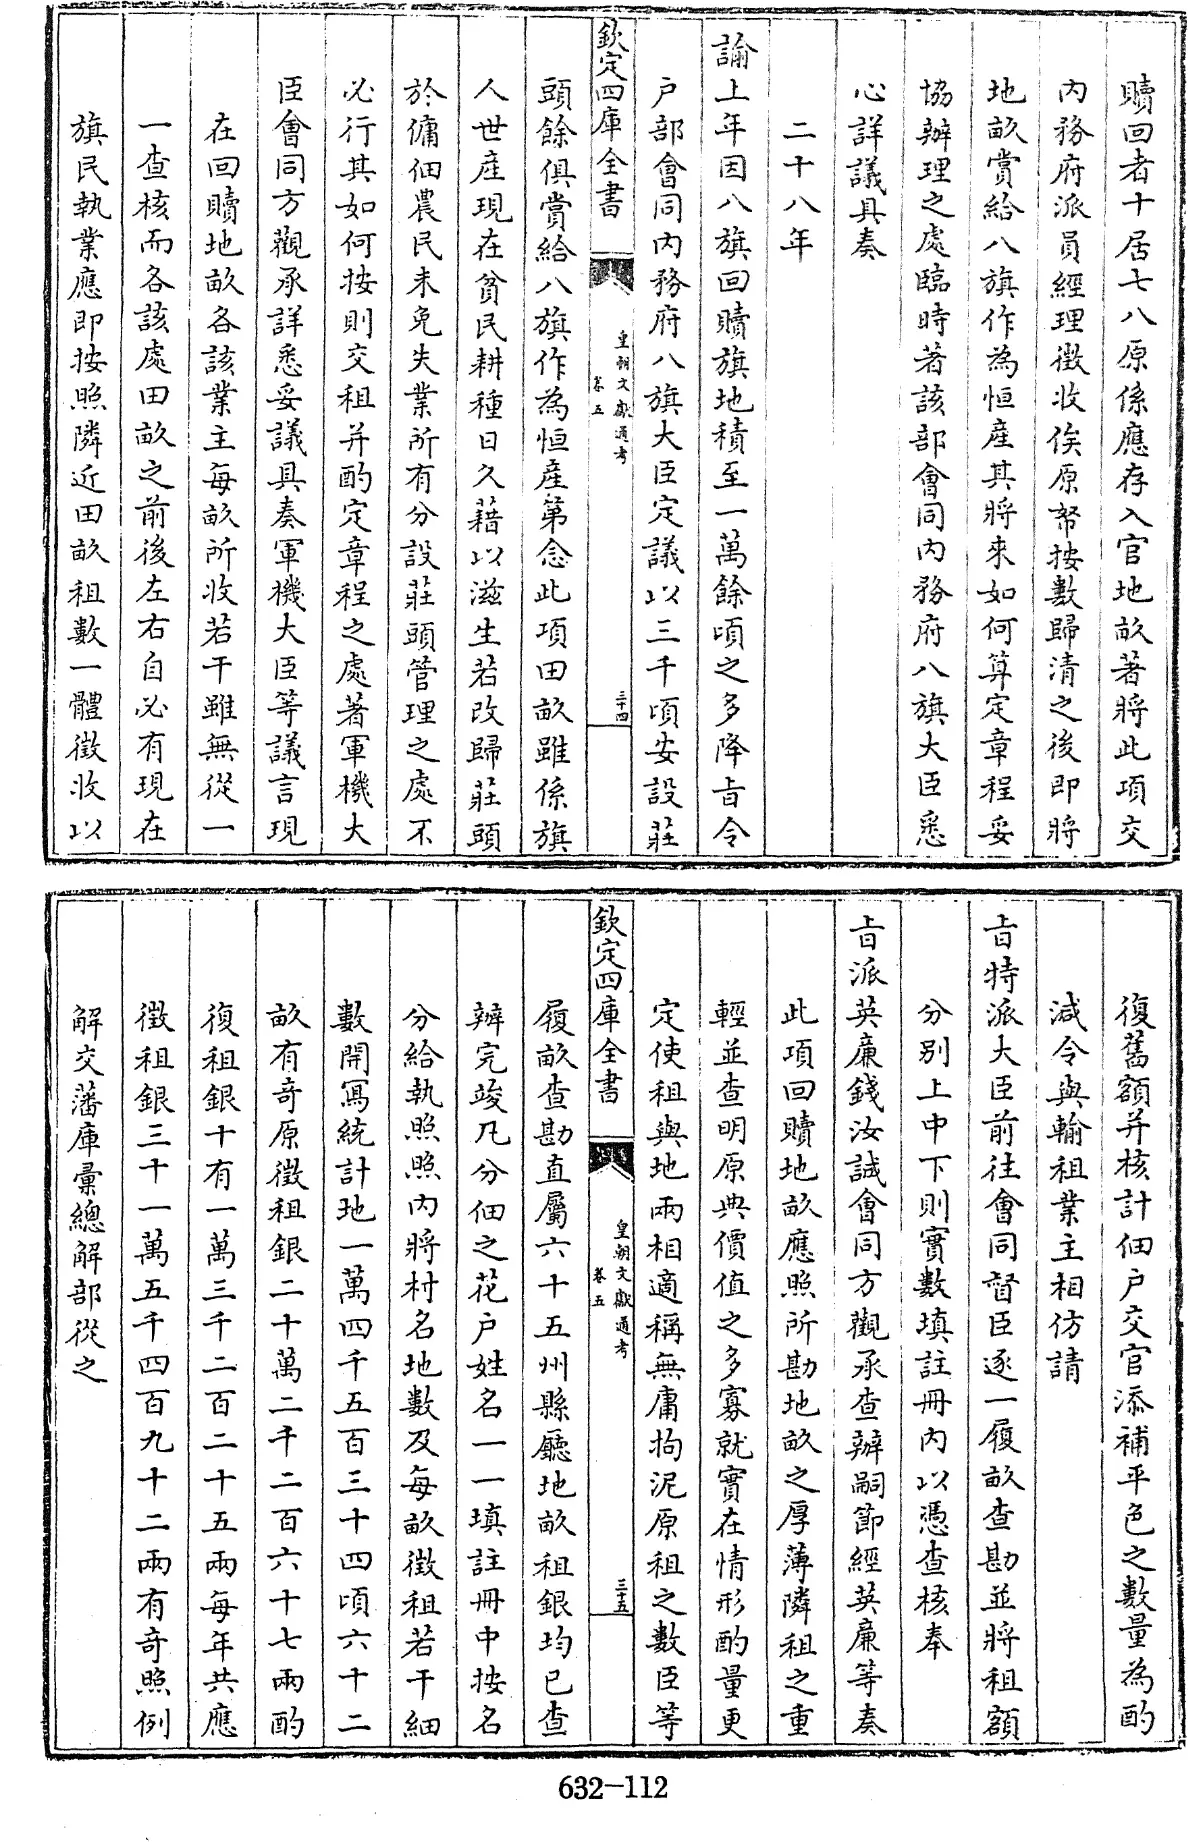 贖回者十居七八原係應存入官地畝著將此項交
内務府派員經理徵收俟原帑按數歸清之後即將
地畝賞給八旗作為恒產其將來如何算定章程妥
協辦理之處臨時著該部會同内務府八旗大臣悉
心詳議具奏
二十八年
諭上年因八旗回贖旗地積至一萬餘頃之多降㫖令
户部會同内務府八旗大臣定議以三千頃安設莊
欽定四庫全書
皇朝文獻通考
卷五
三十四
頭餘俱賞給八旗作為恒產第念此項田畝雖係旗
人世產現在貧民耕種日久藉以滋生若改歸莊頭
於傭佃農民未免失業所有分設莊頭管理之處不
必行其如何按則交租并酌定章程之處著軍機大
臣會同方觀承詳悉妥議具奏軍機大臣等議言現
在回贖地畝各該業主每畝所收若干雖無從一
一查核而各該處田畝之前後左右自必有現在
旗民執業應即按照隣近田畝租數一體徵收以
復舊額并核計佃户交官添補平色之數量為酌
減令與輸租業主相仿請
㫖特派大臣前往會同督臣逐一履畝查勘並將租額
分别上中下則實數填註冊内以憑查核奉
㫖派英廉錢汝誠會同方觀承查辦嗣節經英廉等奏
此項回贖地畝應照所勘地畝之厚薄隣租之重
輕並查明原典價值之多寡就實在情形酌量更
定使租與地兩相適稱無庸拘泥原租之數臣等
欽定四庫全書
皇朝文獻通考
卷五
三十五
履畝查勘直屬六十五州縣廳地畝租銀均已查
辦完竣凡分佃之花户姓名一一填註冊中按名
分給執照照内將村名地數及每畝徵租若干細
數開寫統計地一萬四千五百三十四頃六十二
畝有奇原徵租銀二十萬二千二百六十七兩酌
復租銀十有一萬三千二百二十五兩每年共應
徵租銀三十一萬五千四百九十二兩有奇照例
解交藩庫彙總解部從之
632-112